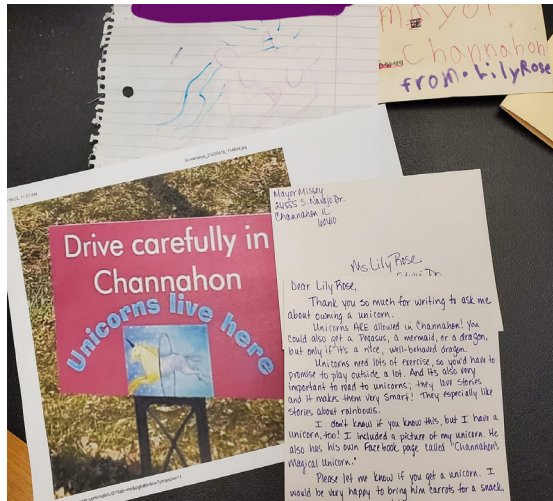 mayor
Channahon
from·LilyRose
Drive carefully in
Channahon
Unicorns live here
Mayor Missey
24555 S. Navajo Dr.
Channahon IL
60410
Ms. Lily Rose
Dear Lily Rose,
Thank you so much for writing to ask me
about owning a unicorn.
Unicorns ARE allowed in Channahon! You
could also get a Pegasus, a mermaid, or a dragon,
but only if it's a nice, well-behaved dragon.
Unicorns need lots of exercise, so you'd have to
promise to play outside a lot. And its also very
important to read to unicorns; they love stories
and it makes them very smart! They especially like
stories about rainbows.
I don't know if you knew this, but I have a
unicorn, too! I included a picture of my unicorn. He
also has his own Facebook page called "Channahon's
Magical Unicorn."
Please let me know if you get a unicorn. I
would be very happy to bring him carrots for a snack,